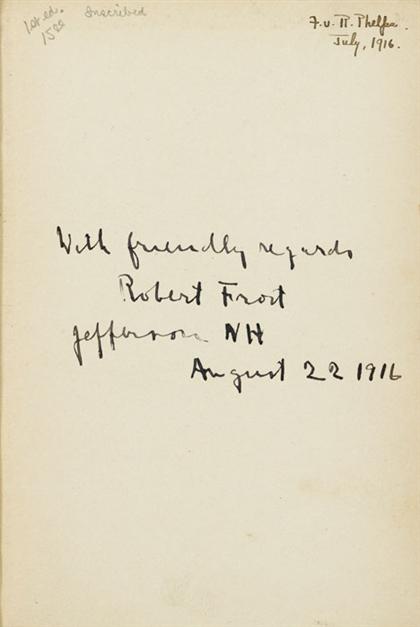 1st ed.
15.00
Inscribed
F. v. R. Phelps.
July, 1916.
With friendly regards
Robert Frost
Jefferson NH
August 22 1916